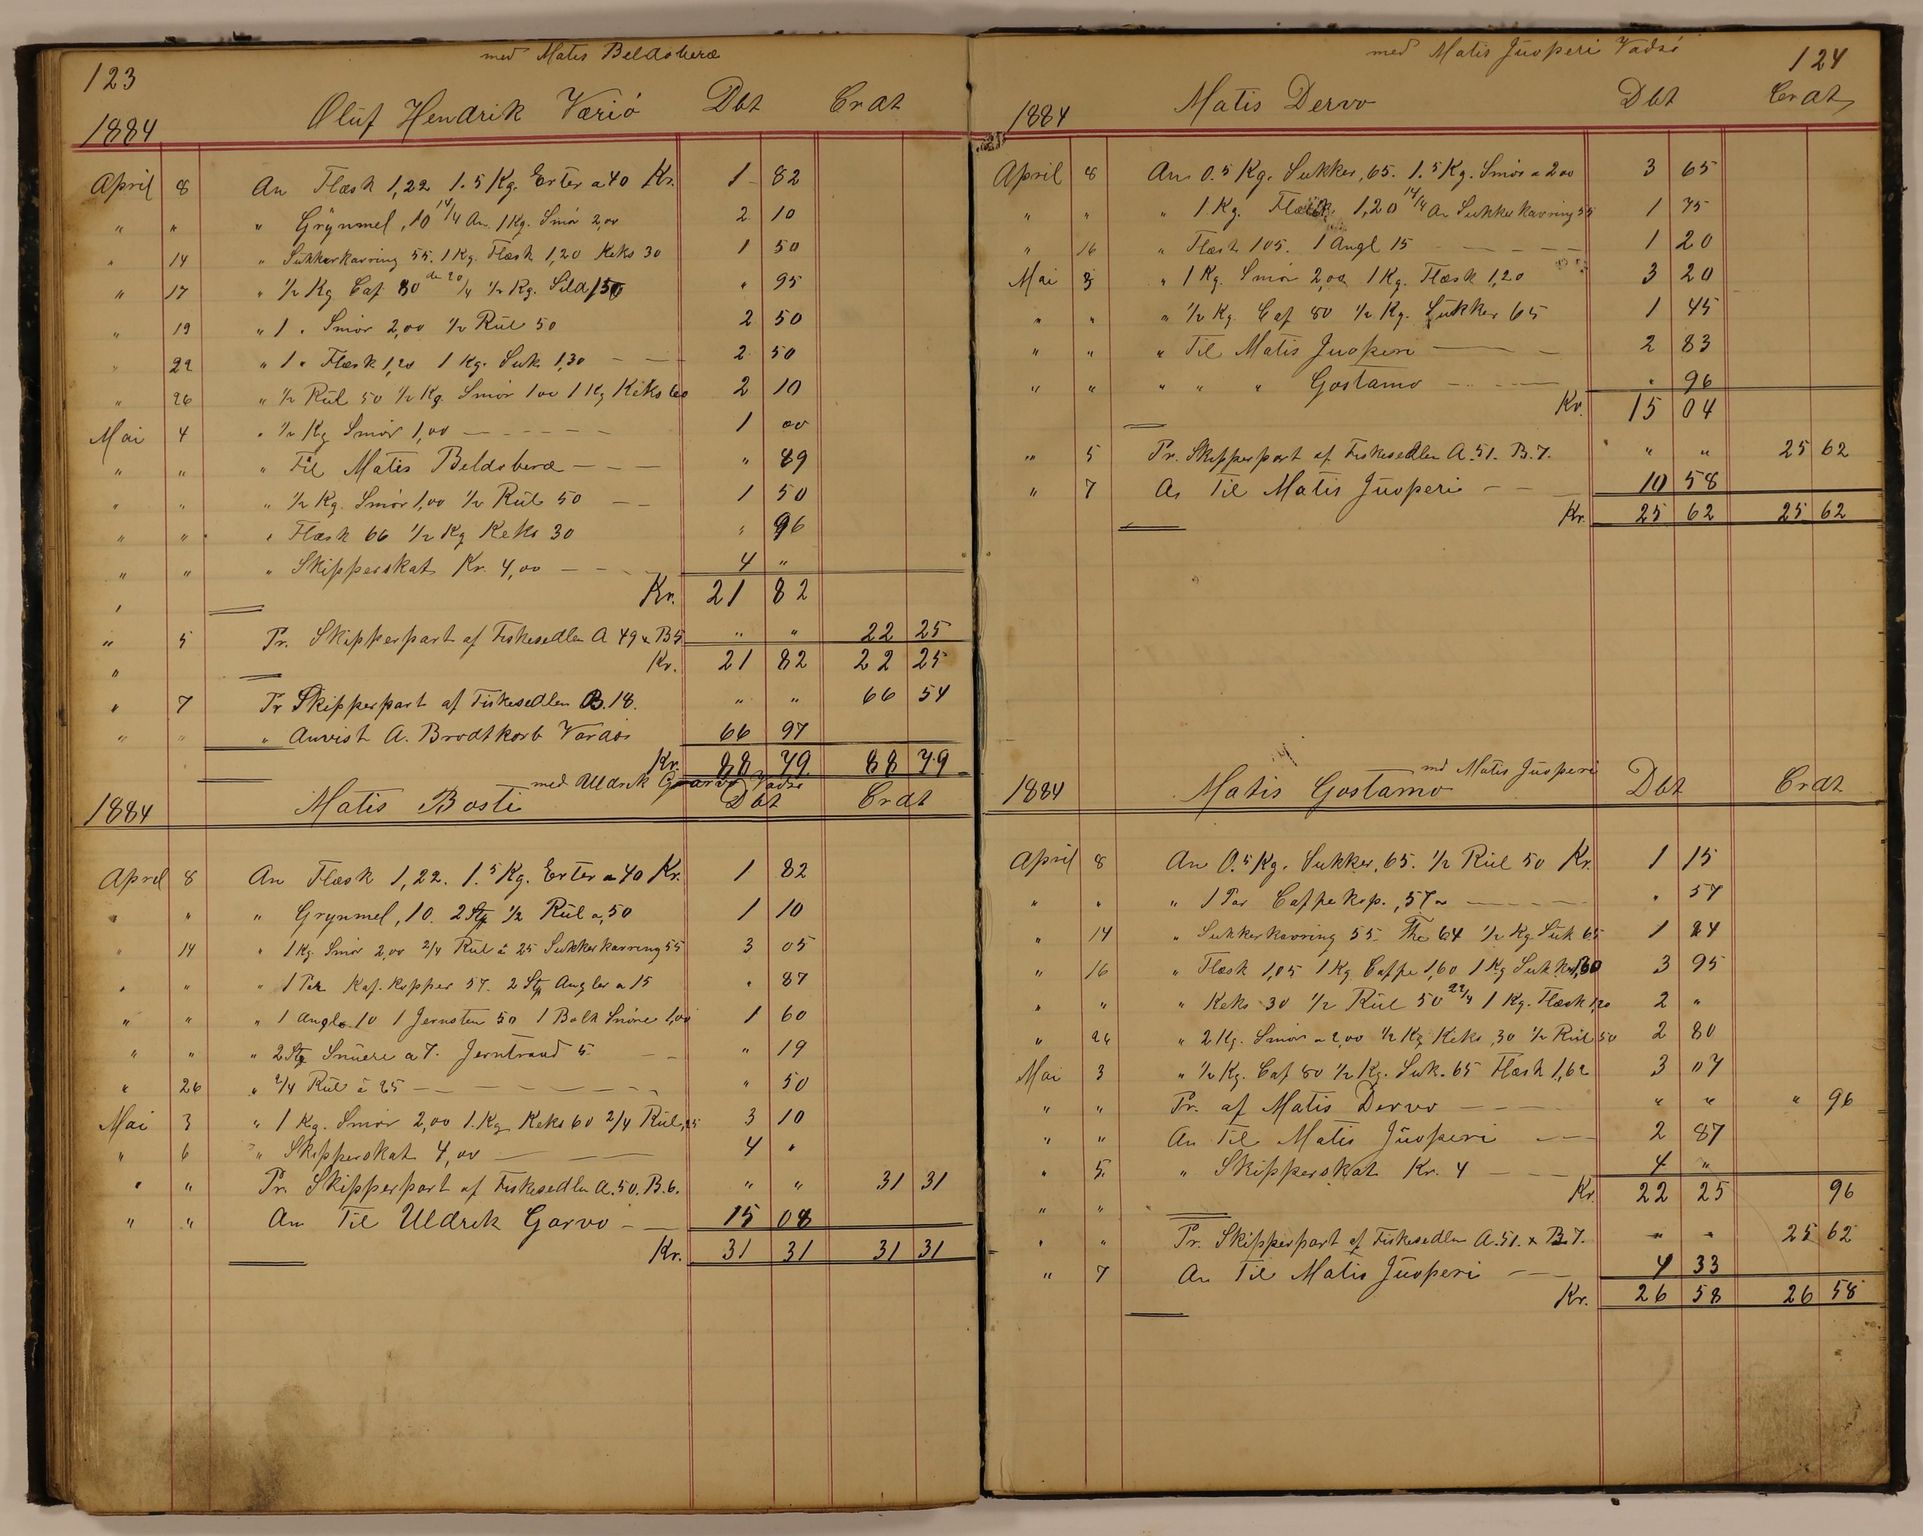 123
med Matis Beldoberæ
Oluf Hendrik Væriö Dbt Crdt
1884
April 8 An Flæsk 1,22 1.5 Kg. Erter a 40 Kr. 1 82
" " " Grynmel ,10 14/4 An. 1 Kg. Smör 2,00 2 10
" 14 " Sukkerkavring 55. 1 Kg. Flæsk 1,20 Keks 30 1 50
" 17 " 1/2 Kg Caf 80 1/2 Kg. Sild 150 " 95
" 19 " 1 " Smör 2,00 1/2 Rül 50 2 50
" 22 " 1 " Flæsk 1,20 1 Kg. Suk 1,30 2 50
" 26 " 1/2 Rül 50 1/2 Kg Smör 100 1 Kg Keks 60 2 10
Mai 4 " 1/2 Kg Smör 1,00 1 00
" " " Til Matis Beldoberæ " 89
" " " 1/2 Kg. Smör 1,00 1/2 Rül 50 1 50
" " " Flæsk 66 1/2 Kg Keks 30 " 96
" " " Skipperskat Kr. 4,00 4 "
Kr. 21 82
" 5 Pr. Skipperpart af Fiskesedlen A 49 & B 5 " " 22 25
" Kr. 21 82 22 25
" 7 Pr Skipperpart af Fiskesedlen B. 18. " " 66 54
" " " Anvist A. Brodtkorb Vardöe 66 97
Kr. 88 79 88 79
med Uldrik Garvo Vadsö
1884 Matis Bosti Dbt Crdt
April 8 An Flæsk 1,22. 1.5 Kg. Erter a 40 Kr. 1 82
" " " Grynmel ,10. 2 Stp 1/2 Rül a ,50 1 10
" 14 " 1 Kg Smör 2,00 2/4 Rül á 25 Sukkerkavring 55 3 05
" " " 1 Par Kaf. kopper 57. 2 Stp Angler a 15 " 87
" " " 1 Angle 10 1 Jernsten 50 1 Bolk Snöre 1,00 1 60
" " " 2 Stp Snüere a 7. Jerntraad 5. " 19
" 26 " 2/4 Rül á 25 " 50
Mai 3 " 1 Kg. Smör 2,00 1. Kg Keks 60 2/4 Rül ,25 3 10
" 6 " Skipperskat 4,00 4 "
" " Pr. Skipperpart af Fiskesedlen A. 50. B. 6. " " 31 31
" " An Til Uldrik Garvo 15 08
Kr. 31 31 31 31
med Matis Juoperi Vadsö
124
1884 Matis Dervo Dbt Crdt
April 8 An 0.5 Kg. Sukker ,65. 1.5 Kg. Smör a 200 3 65
" " " 1 Kg. Flæsk 1,20 14/4 An Sukkerkavring 55 1 75
" 16 " Flæsk 105. 1 Angl 15 1 20
Mai 3 " 1 Kg. Smör 2,00 1 Kg. Flæsk 1,20 3 20
" " " 1/2 Kg. Caf 80 1/2 Kg. Sukker 65 1 45
" " " Til Matis Juoperi 2 83
" " " " " Gostamo " 96
Kr. 15 04
" 5 Pr. Skipperpart af Fiskesedlen A. 51. B. 7. " " 25 62
" 7 An Til Matis Juoperi 10 58
Kr. 25 62 25 62
md Matis Juoperi
1884 Matis Gostamo Dbt Crdt
April 8 An 0.5 Kg. Sukker ,65. 1/2 Rül 50 Kr. 1 15
" " " 1 Par Caffekop. ,57 " 57
" 14 " Sukkerkavring 55. The 64 1/2 Kg Suk 65 1 84
" 16 " Flæsk 1,05 1 Kg Caffe 1,60 1 Kg Sukker 1,30 3 95
" " " Keks 30 1/2 Rül 50 22/4 1 Kg. Flæsk 1,20 2 "
" 26 " 2 Kg. Smör a 2,00 1/2 Kg Keks ,30 1/2 Rül 50 2 80
Mai 3 " 1/2 Kg. Caf 80 1/2 Kg. Suk. 65 Flæsk 1,62 3 07
" " Pr. af Matis Dervo " " " 96
" " An Til Matis Juoperi 2 87
" 5. " Skipperskat Kr. 4 4 "
" " Kr. 22 25 96
" " Pr. Skipperpart af Fiskesedlen A. 51. & B. 7. " " 25 62
" 7 An Til Matis Juoperi 4 33
Kr. 26 58 26 58